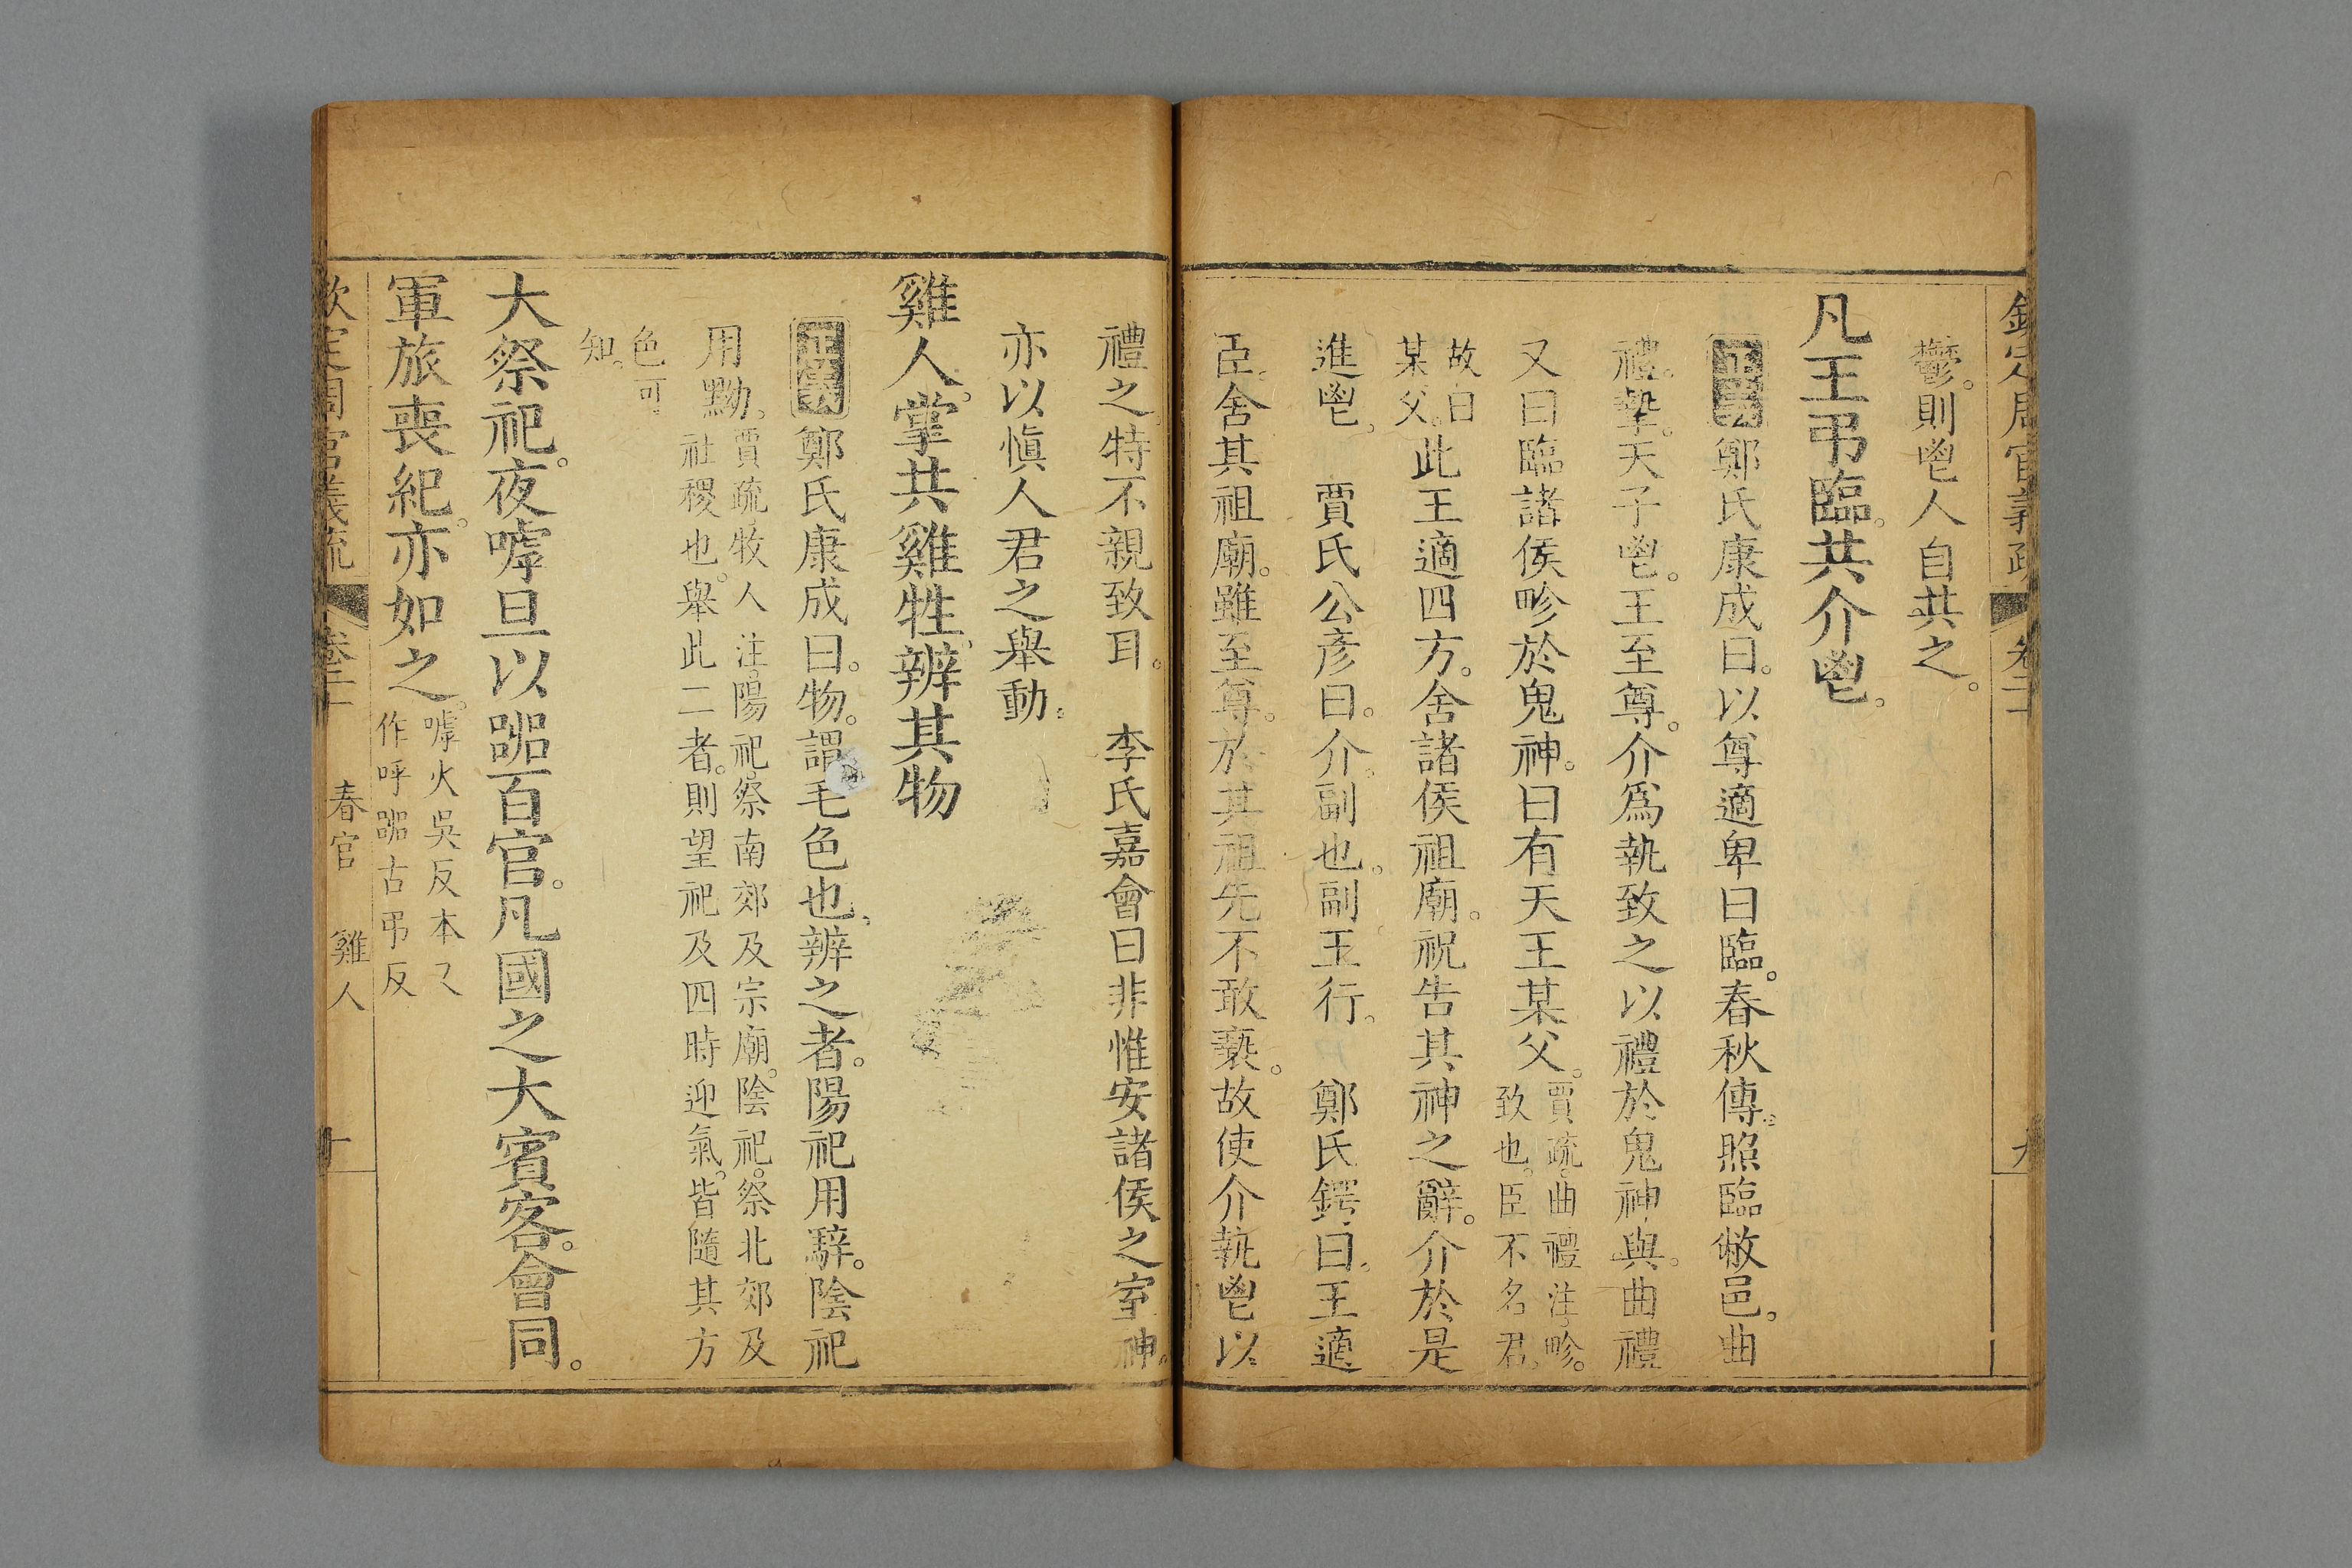 欽定周官義疏 卷二十 九
鬱。則鬯人自共之。
凡王弔臨。共介鬯。
正義 鄭氏康成曰。以尊適卑曰臨。春秋傳。照臨敝邑。曲
禮。摯。天子鬯。王至尊。介爲執致之以禮於鬼神與。曲禮
又曰臨諸侯畛於鬼神。曰有天王某父。賈疏。曲禮注。畛。
致也。臣不名君。
故曰
某父。此王適四方。舍諸侯祖廟。祝告其神之辭。介於是
進鬯。 賈氏公彦曰。介。副也。副王行。 鄭氏鍔曰。王適
臣。舍其祖廟。雖至尊。於其祖先不敢褻。故使介執鬯以
禮之。特不親致耳。 李氏嘉會曰非惟安諸侯之室神。
亦以愼人君之舉動。
雞人。掌共雞牲。辨其物
正義 鄭氏康成曰。物。謂毛色也。辨之者。陽祀用騂。陰祀
用黝。賈疏。牧人 注。陽祀。祭南郊及宗廟。陰祀。祭北郊及
社稷也。舉此二者。則望祀及四時迎氣。皆隨其方
色可
知。
大祭祀。夜嘑旦以嘂百官。凡國之大賓客。會同。
軍旅喪紀。亦如之。嘑火吳反本又
作呼嘂古弔反
欽定周官義疏 卷二十 春官 雞人 十